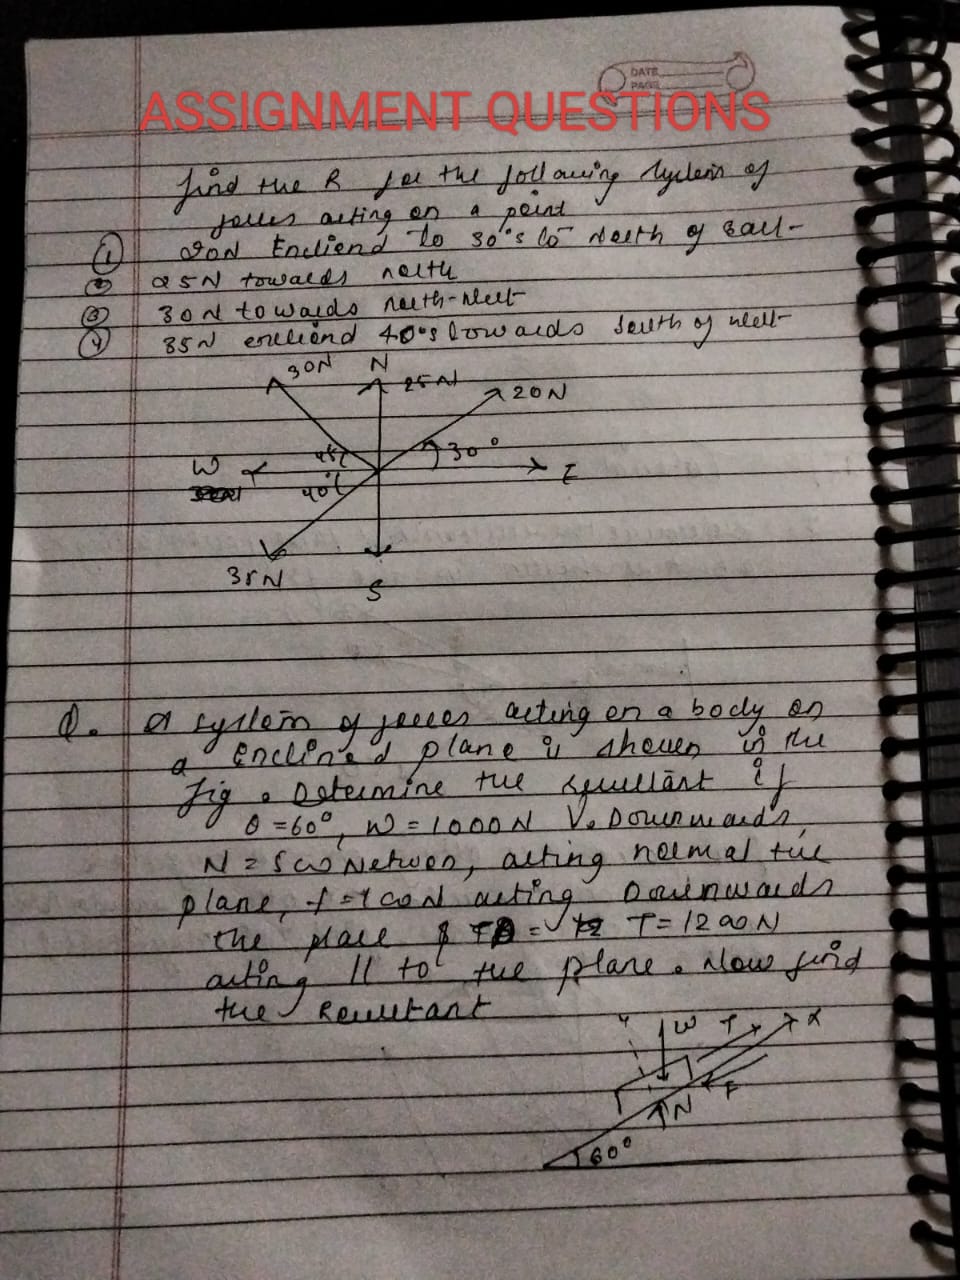 DATE
PAGE
ASSIGNMENT QUESTIONS
find the R for the following system of
forces acting on a point
① 20N Encliend to 30°s to North of East
② 25N towards north
③ 30N towards north-west
④ 35N encliend 40°s towards south of west
30N N 25N 20N
45° 30°
W E
40°
35N S
Q. A system of forces acting on a body on
a Enclined plane is shown in the
fig. Determine the resultant if
θ = 60°, W = 1000N V. Downwards,
N = 500 Netwon, acting normal the
plane, f = 100N acting Downwards
the place & T = 1200N
acting || to the plane. Now find
the Resultant
Y W T X
N F
60°